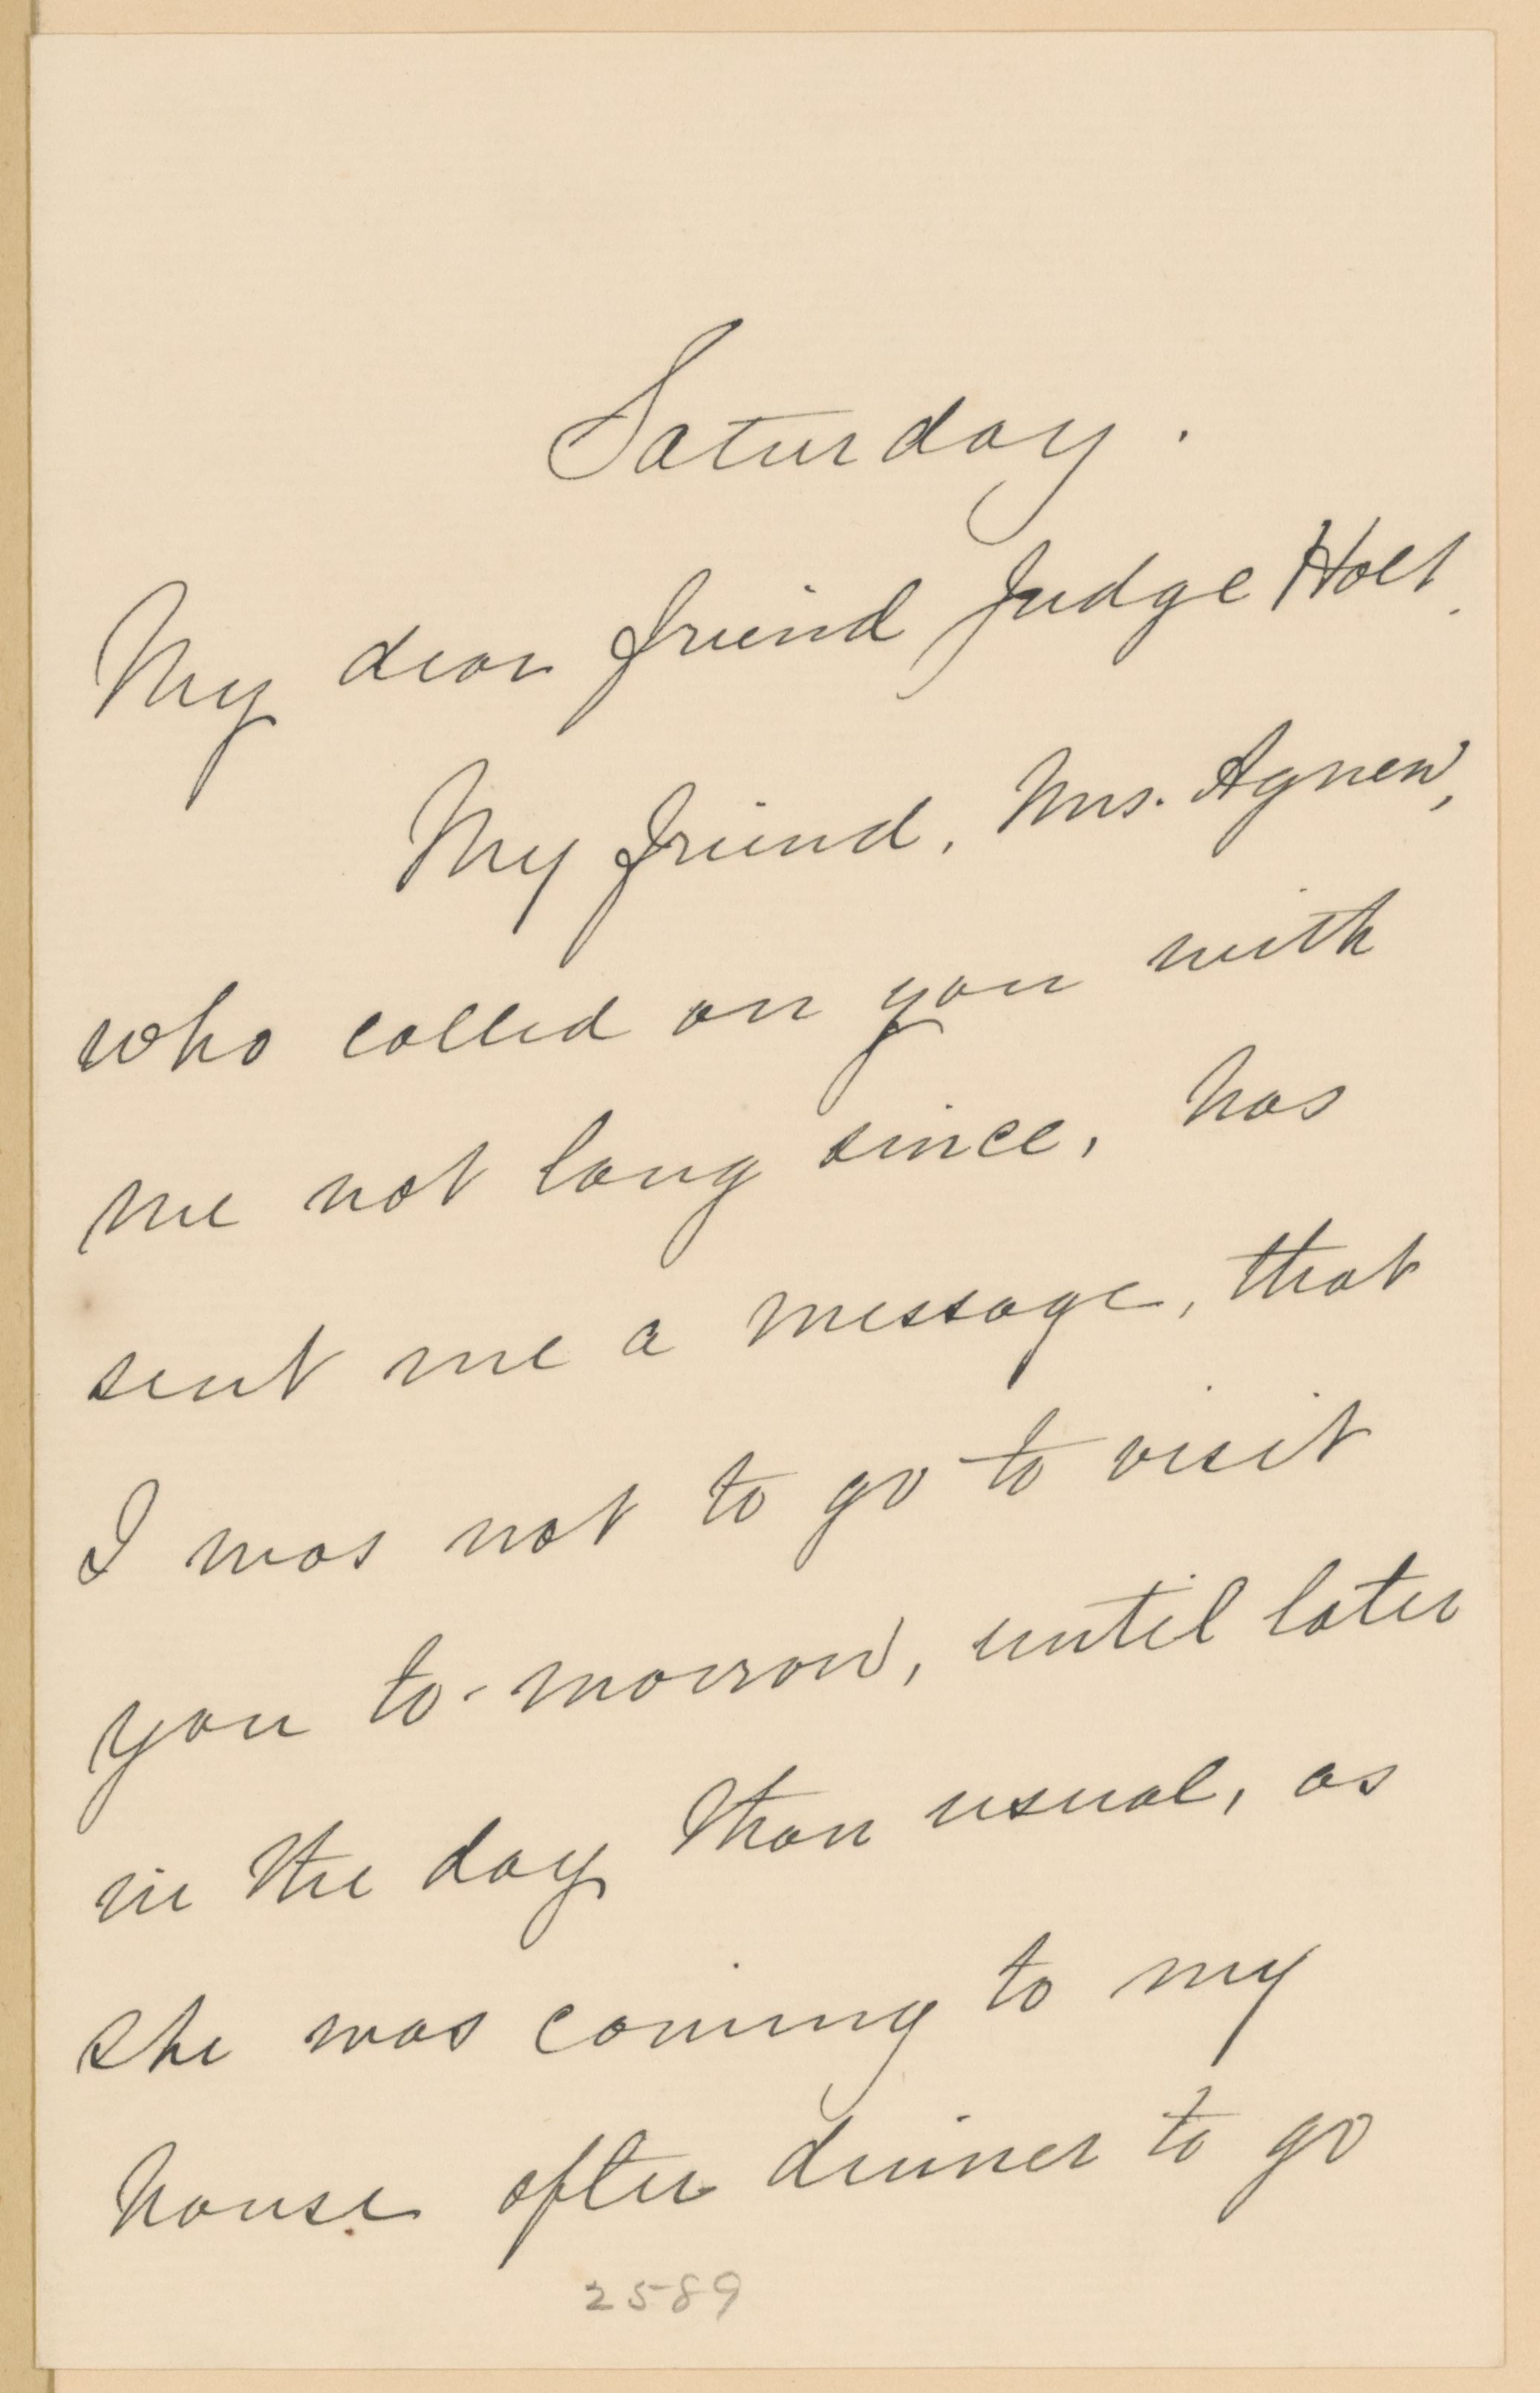 Saturday.
My dear friend Judge Holt.
My friend, Mrs. Agnew,
who called on you with
me not long since, has
sent me a message, that
I was not to go to visit
you to-morrow, until later
in the day than usual, as
she was coming to my
house after dinner to go
2589